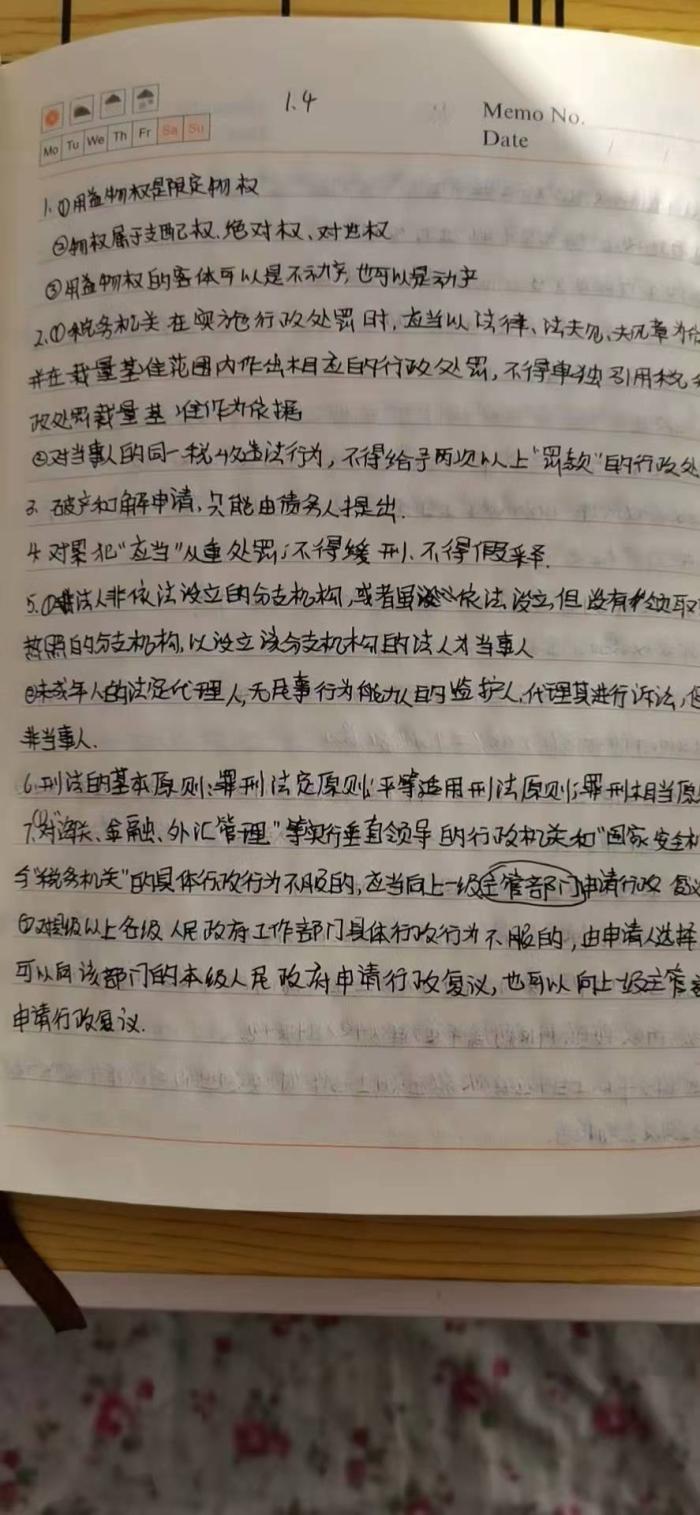 1.4
Memo No.
Date
Mo Tu We Th Fr Sa Su
1.①用益物权是限定物权
②物权属于支配权、绝对权、对世权
③用益物权的客体可以是不动产,也可以是动产
2.①税务机关在实施行政处罚时,应当以法律、法规、规章为
并在裁量基准范围内作出相应的行政处罚,不得单独引用税
政处罚裁量基准作为依据
②对当事人的同一税收违法行为,不得给予两次以上“罚款”的行政处
3.破产和解申请,只能由债务人提出.
4.对累犯“应当”从重处罚;不得缓刑、不得假释.
5.①法人非依法设立的分支机构,或者虽依法设立,但没有领取
执照的分支机构,以设立该分支机构的法人为当事人
②未成年人的法定代理人,无民事行为能力人的监护人,代理其进行诉讼,但
非当事人.
6.刑法的基本原则:罪刑法定原则;平等适用刑法原则;罪刑相当原
7.①对“海关、金融、外汇管理”等实行垂直领导的行政机关和“国家安全机
“税务机关”的具体行政行为不服的,应当向上一级主管部门申请行政复议
②对县级以上各级人民政府工作部门具体行政行为不服的,由申请人选择
可以向该部门的本级人民政府申请行政复议,也可以向上一级主管
申请行政复议.